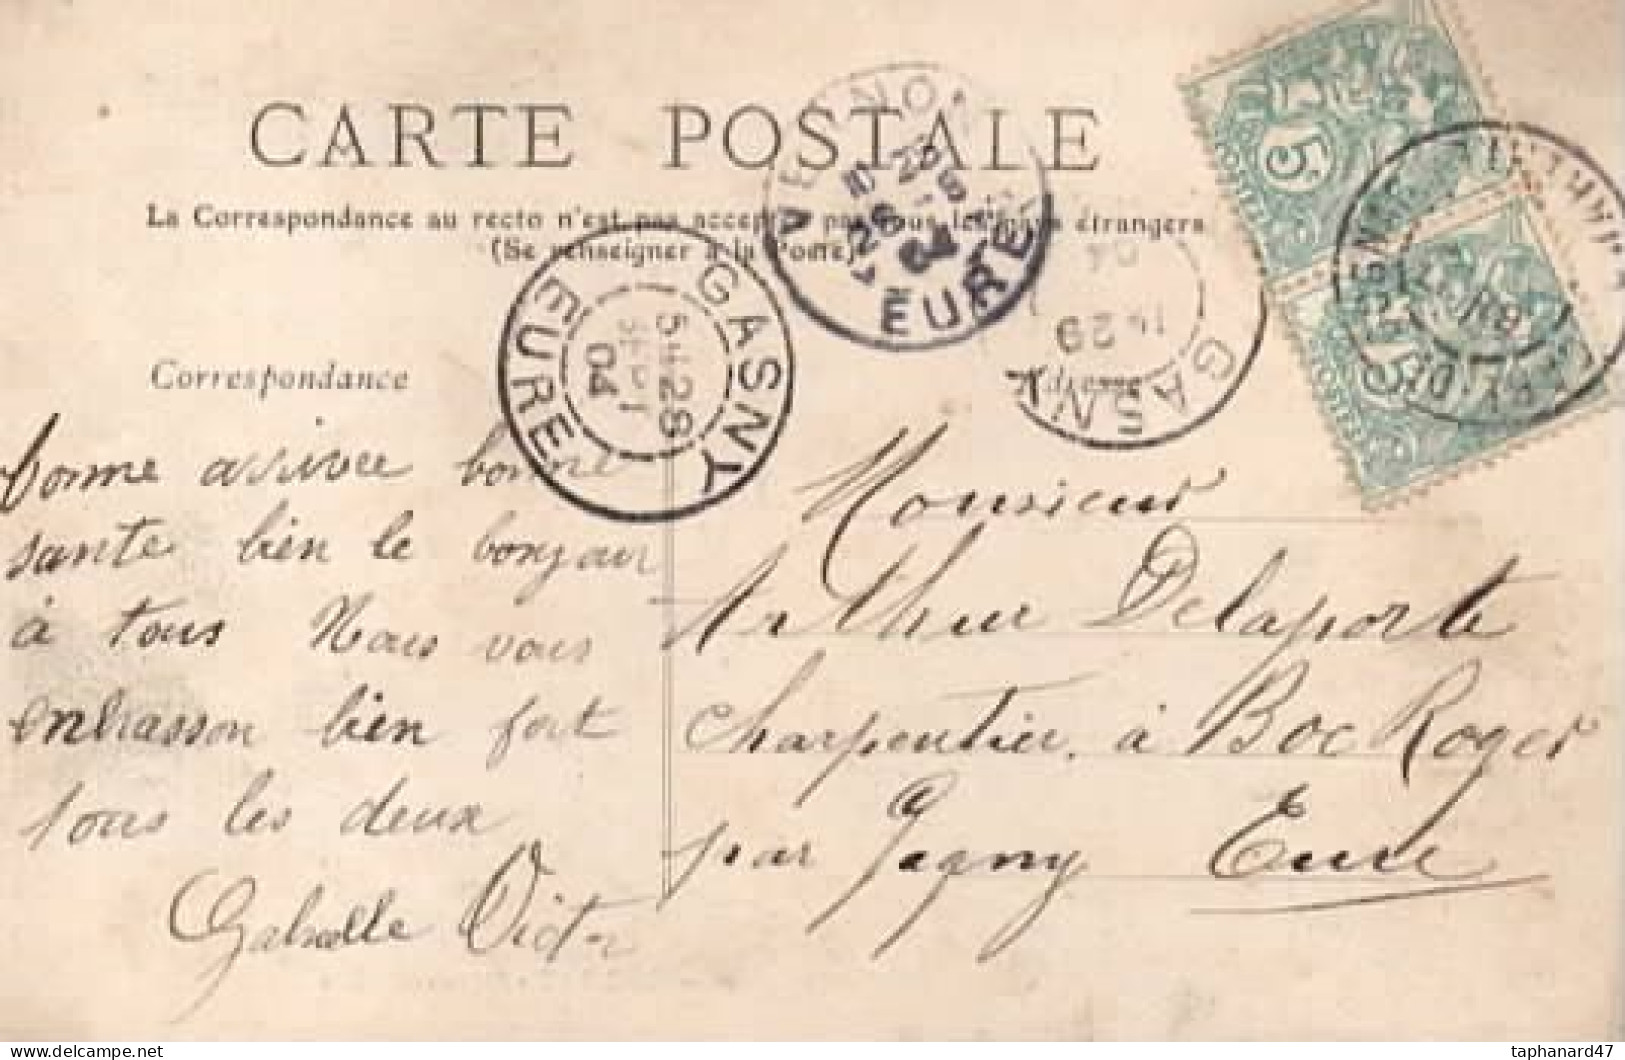 CARTE POSTALE
La Correspondance au recto n'est pas acceptée par tous les pays étrangers
(Se renseigner à la Poste)
VERNON
EURE
28
04
GASNY
EURE
28
04
GASNY
29
04
5
5
Correspondance
Adresse
bonne arrivee bonne
sante bien le bonjour
à tous Nous vous
enbrasson bien fort
tous les deux
Gabrielle Victor
Monsieur
Arthur Delaporte
charpentier à Boc Roger
par Gagny Eure
taphanard47